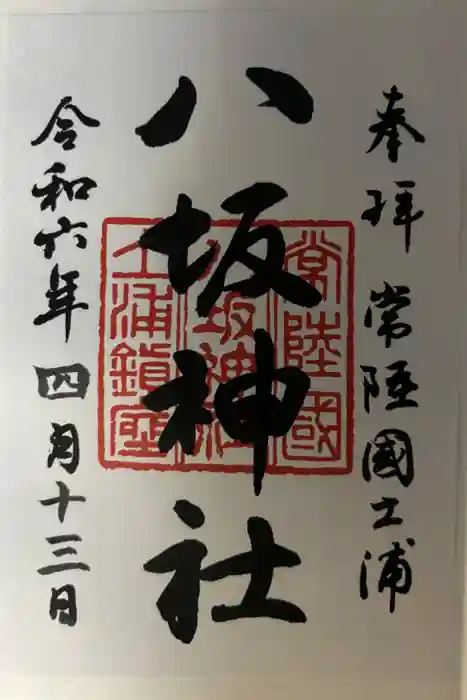 奉拝 常陸國土浦
八坂神社
令和六年四月十三日
常陸國
八坂神社
土浦鎮座